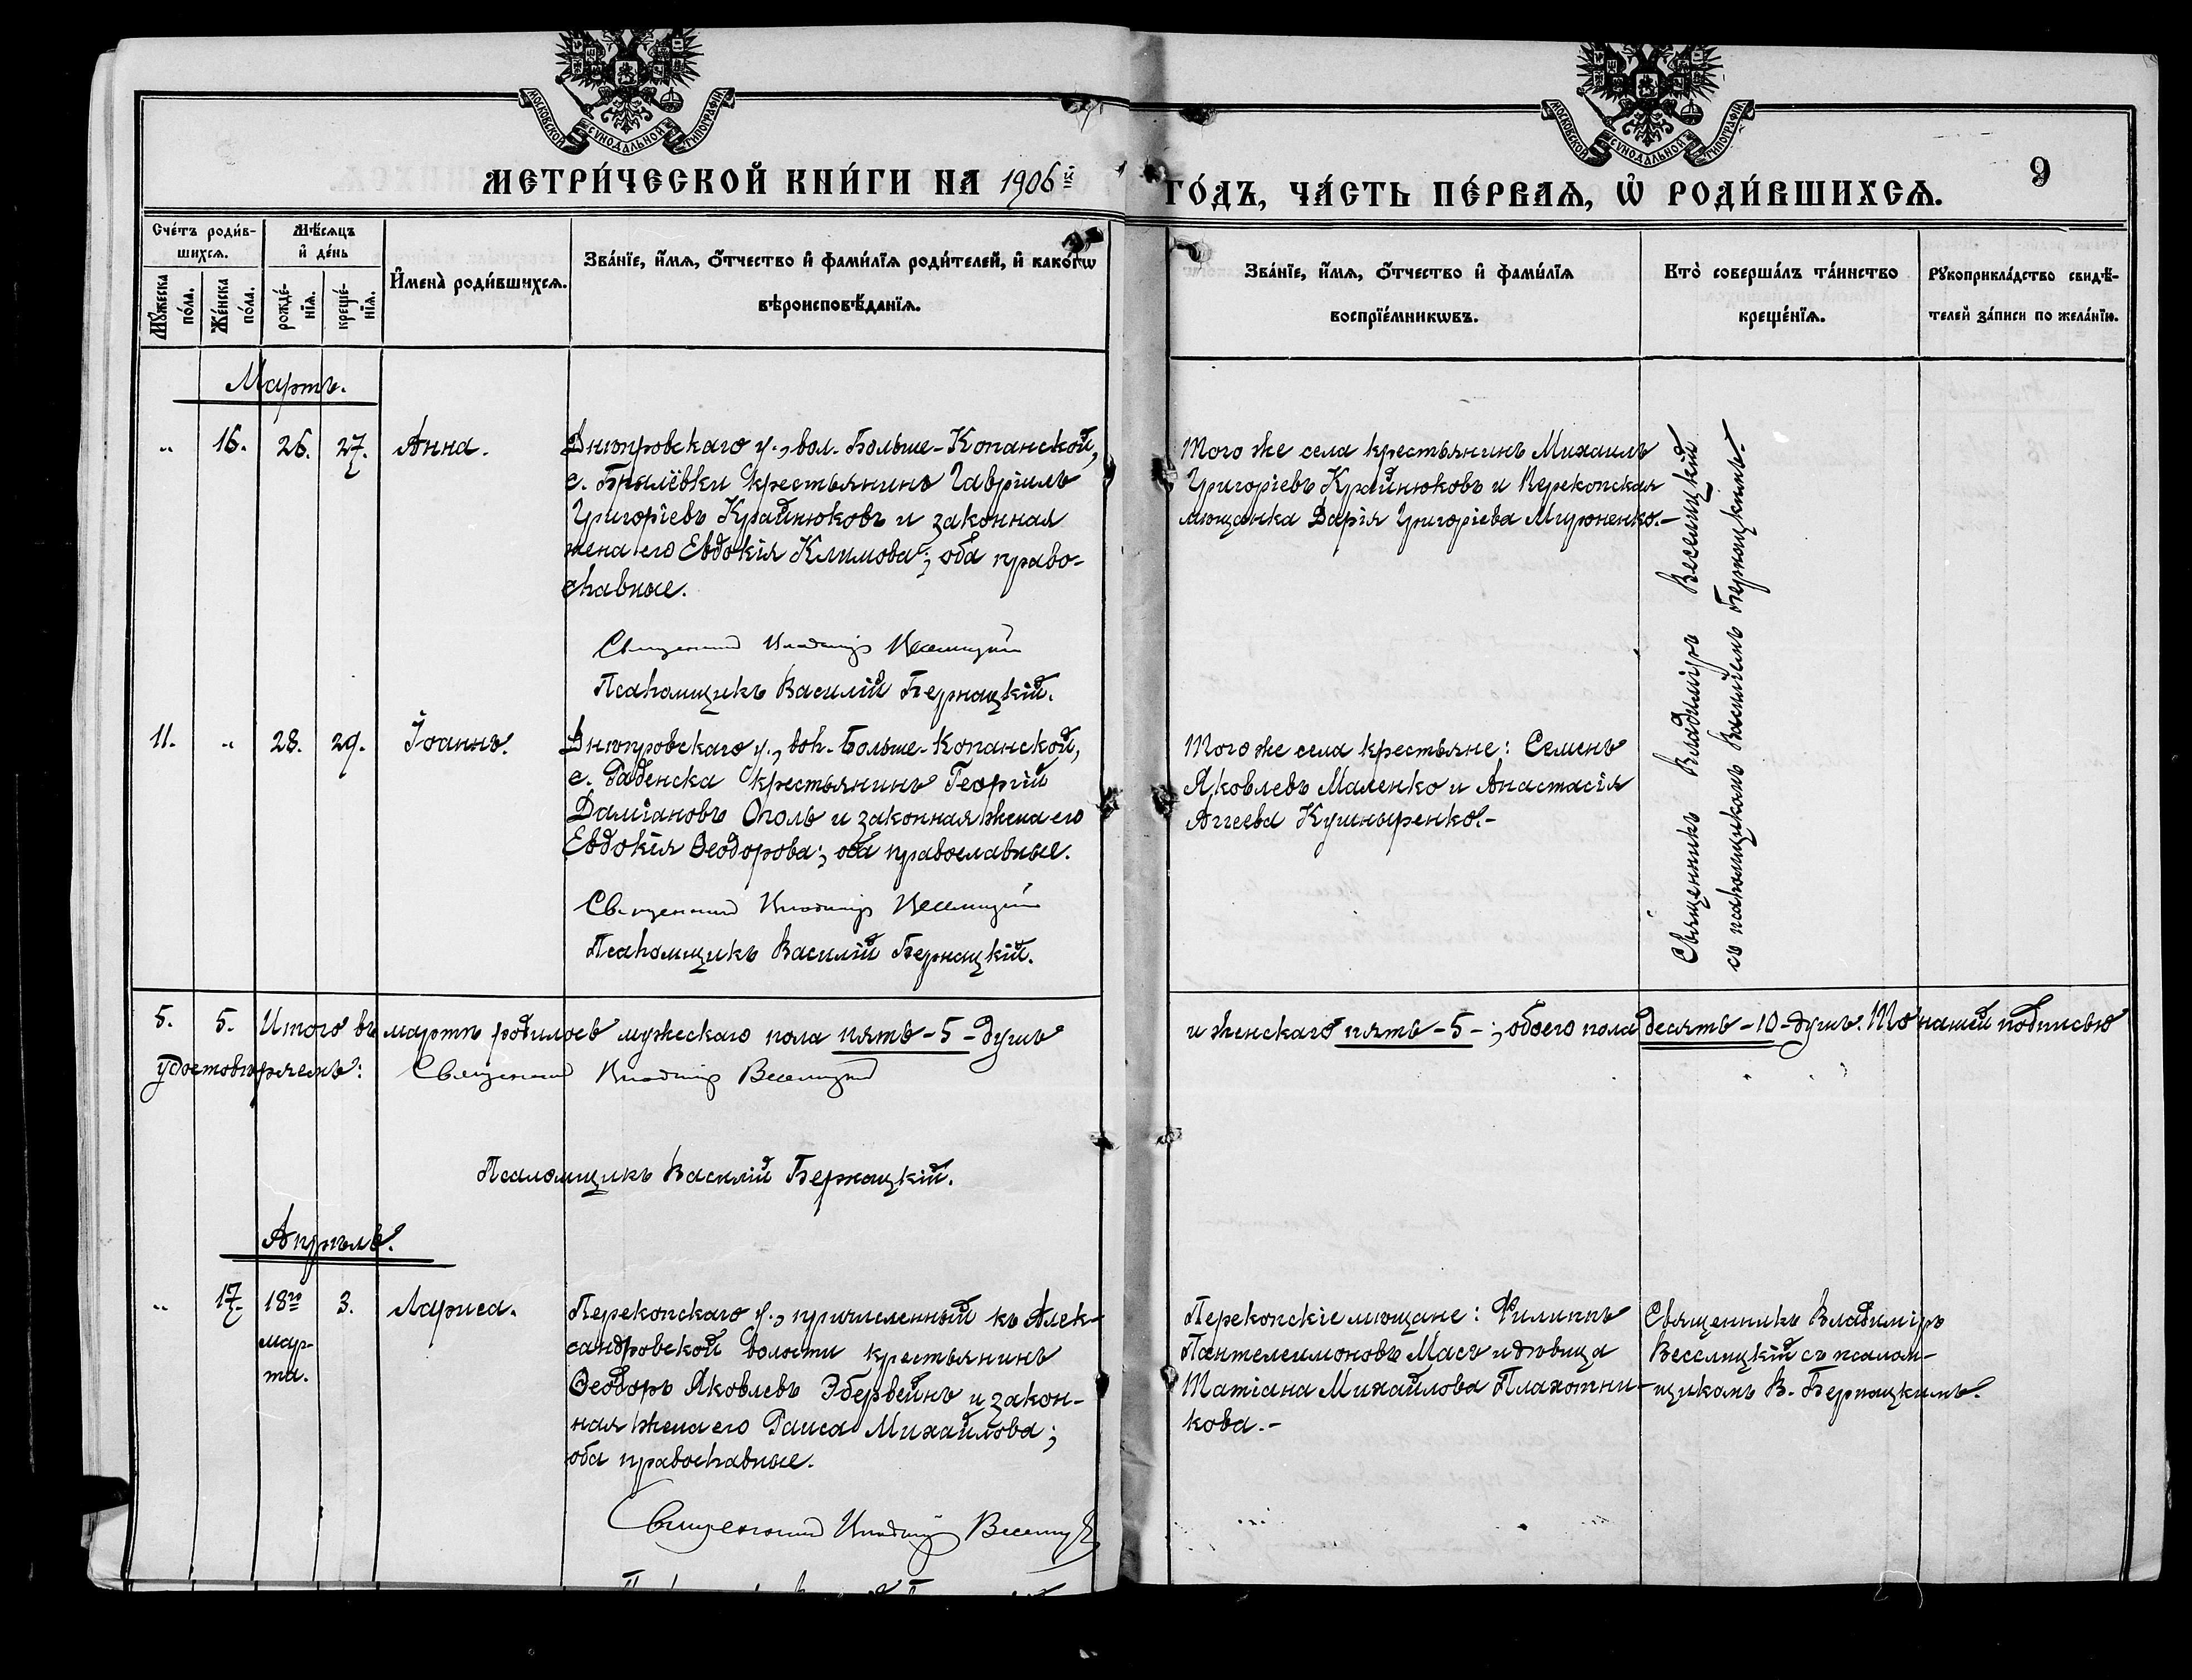 МОСКОВСКОЙ СѴНОДАЛЬНОЙ ТИПОГРАФІИ
МОСКОВСКОЙ СѴНОДАЛЬНОЙ ТИПОГРАФІИ
МЕТРИ́ЧЕСКОЙ КНИ́ГИ НА 1906й
ГО́ДЪ, ЧА́СТЬ ПЕ́РВАѦ, Ѽ РОДИ́ВШИХСѦ.
9
Сче́тъ роди́в-
шихсѧ.
Мꙋ́жеска по́ла.
Же́нска по́ла.
Мѣ́сѧцъ
и҆ де́нь
рожде́-
нїѧ.
креще́-
нїѧ.
И҆мена̀ роди́вшихсѧ.
Зва́нїе, и҆́мѧ, ѻ҆́тчество и҆ фами́лїѧ роди́телей, и҆ како́гѡ
вѣроисповѣ́данїѧ.
Зва́нїе, и҆́мѧ, ѻ҆́тчество и҆ фами́лїѧ
воспрїе́мникѡвъ.
Кто̀ соверша́лъ та́инство
креще́нїѧ.
Рꙋкоприкла́дство свидѣ́-
телей за́писи по жела́нїю.
Мартъ.
" 16. 26. 27. Анна.
Днѣпровскаго у., вол. Больше-Копанской,
с. Брилёвки крестьянинъ Гавріилъ
Григоріевъ Крайнюковъ и законная
жена его Евдокія Климова; оба право-
славные.
Священникъ Владиміръ Веселицкій
Псаломщикъ Василій Бернацкій.
Того же села крестьянинъ Михаилъ
Григоріевъ Крайнюковъ и Перекопская
мѣщанка Дарія Григоріева Мироненко.-
Священникъ Владиміръ Веселицкій
съ псаломщикомъ Василіемъ Бернацкимъ.-
11. " 28. 29. Іоаннъ.
Днѣпровскаго у., вол. Больше-Копанской,
с. Раденска крестьянинъ Георгій
Даміановъ Ополь и законная жена его
Евдокія Ѳеодорова; оба православные.
Священникъ Владиміръ Веселицкій
Псаломщикъ Василій Бернацкій.
Того же села крестьяне: Семенъ
Яковлевъ Маленко и Анастасія
Аггеева Кушныренко.-
5. 5. Итого въ мартѣ родилось мужескаго пола пять-5-душъ
и женскаго пять-5-; обоего пола десять-10-душъ. То нашей подписью
удостовѣряемъ: Священникъ Владиміръ Веселицкій
Псаломщикъ Василій Бернацкій.
Апрѣль.
" 17. 18го 3. Лариса.
мар-
та.
Перекопскаго у., причисленный къ Алек-
сандровской волости крестьянинъ
Ѳеодоръ Яковлевъ Эбервейнъ и закон-
ная жена его Раиса Михайлова;
оба православные.
Священникъ Владиміръ Веселицкій
Перекопскіе мѣщане: Филиппъ
Пантелеимоновъ Масъ и дѣвица
Татіана Михайлова Плахотни-
кова.-
Священникъ Владиміръ
Веселицкій съ псалом-
щикомъ В. Бернацкимъ.